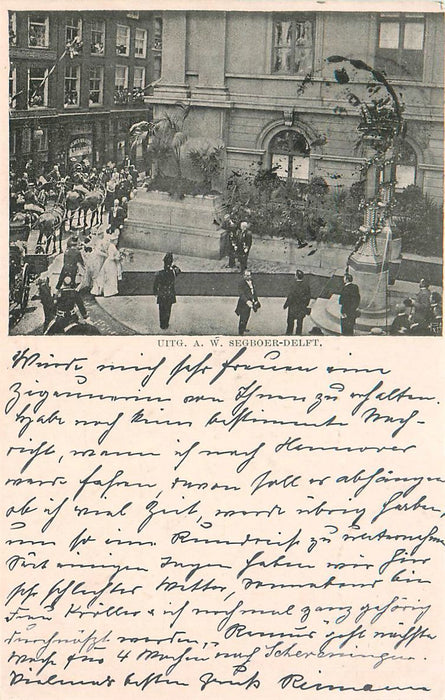 UITG. A. W. SEGBOER-DELFT.
Würde mich sehr freuen eine
Zigeunerin von Ihnen zu erhalten.
Habe noch keine bestimmte Nach-
richt, wann ich nach Hannover
werde fahren, davon soll es abhängen
ob ich viel Zeit, werde übrig haben,
um so eine Rundreise zu unternehmen
Seit einigen Tagen haben wir hier
sehr schlechtes Wetter, Sonnabend bin
Frau Kröller & ich nochmal ganz gehörig
durchnäßt worden, geht nächste
Woche für 4 Wochen nach Scheveningen.
Vielmals besten Gruß